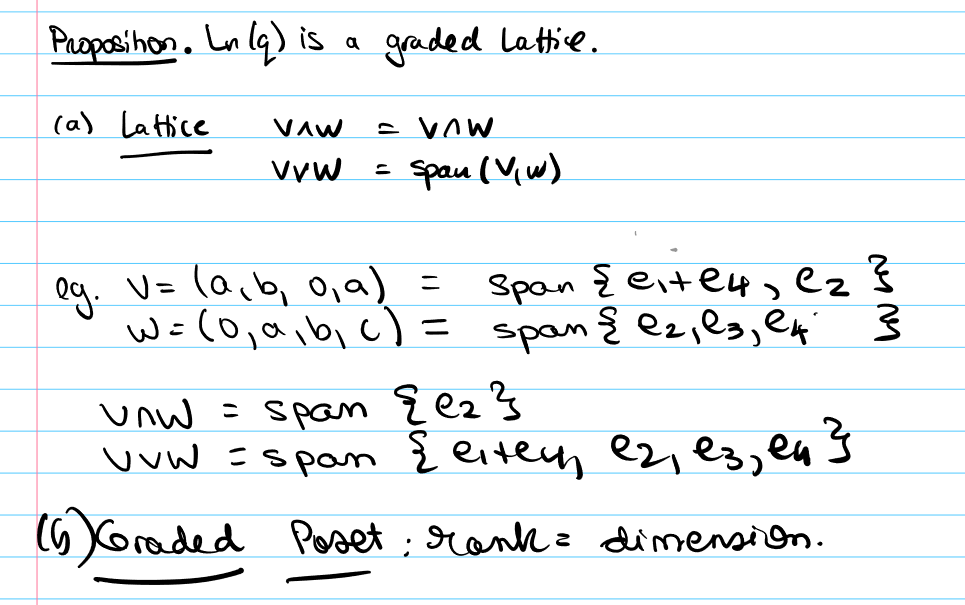 Proposition. Ln(q) is a graded Lattice.
(a) Lattice V∧W = V∩W
V∨W = span(V,W)
eg. V = (a,b, 0,a) = span { e1+e4, e2 }
W = (0,a,b,c) = span { e2,e3,e4 }
V∩W = span {e2}
V∨W = span { e1+e4, e2, e3, e4 }
(b) Graded Poset : rank = dimension.